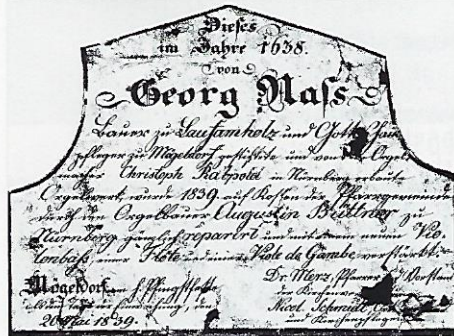 Dieses
im Jahre 1638.
von
Georg Naſs
Bauer zu Laufamholz und Gottshaus
pfleger zu Mögeldorf gestiftete und von Orgel
macher Christoph Rabpold in Nürnberg erbaute
Orgelwerk, wurde 1839. auf Kosten der Pfarrgemeinde
durch den Orgelbauer Augustin Büttner zu
Nürnberg gänzlich reparirt und mit einem neuen Vio
lonbaß, einer Flöte und einer Viole de Gambe verstärkt.
Mögeldorf, am h. Pfingstfeste Dr. Merz, Pfarrer
den der Kirchenverwaltung
20 Mai 1839. Nicol. Schmidt,
und Kirchenpfleger